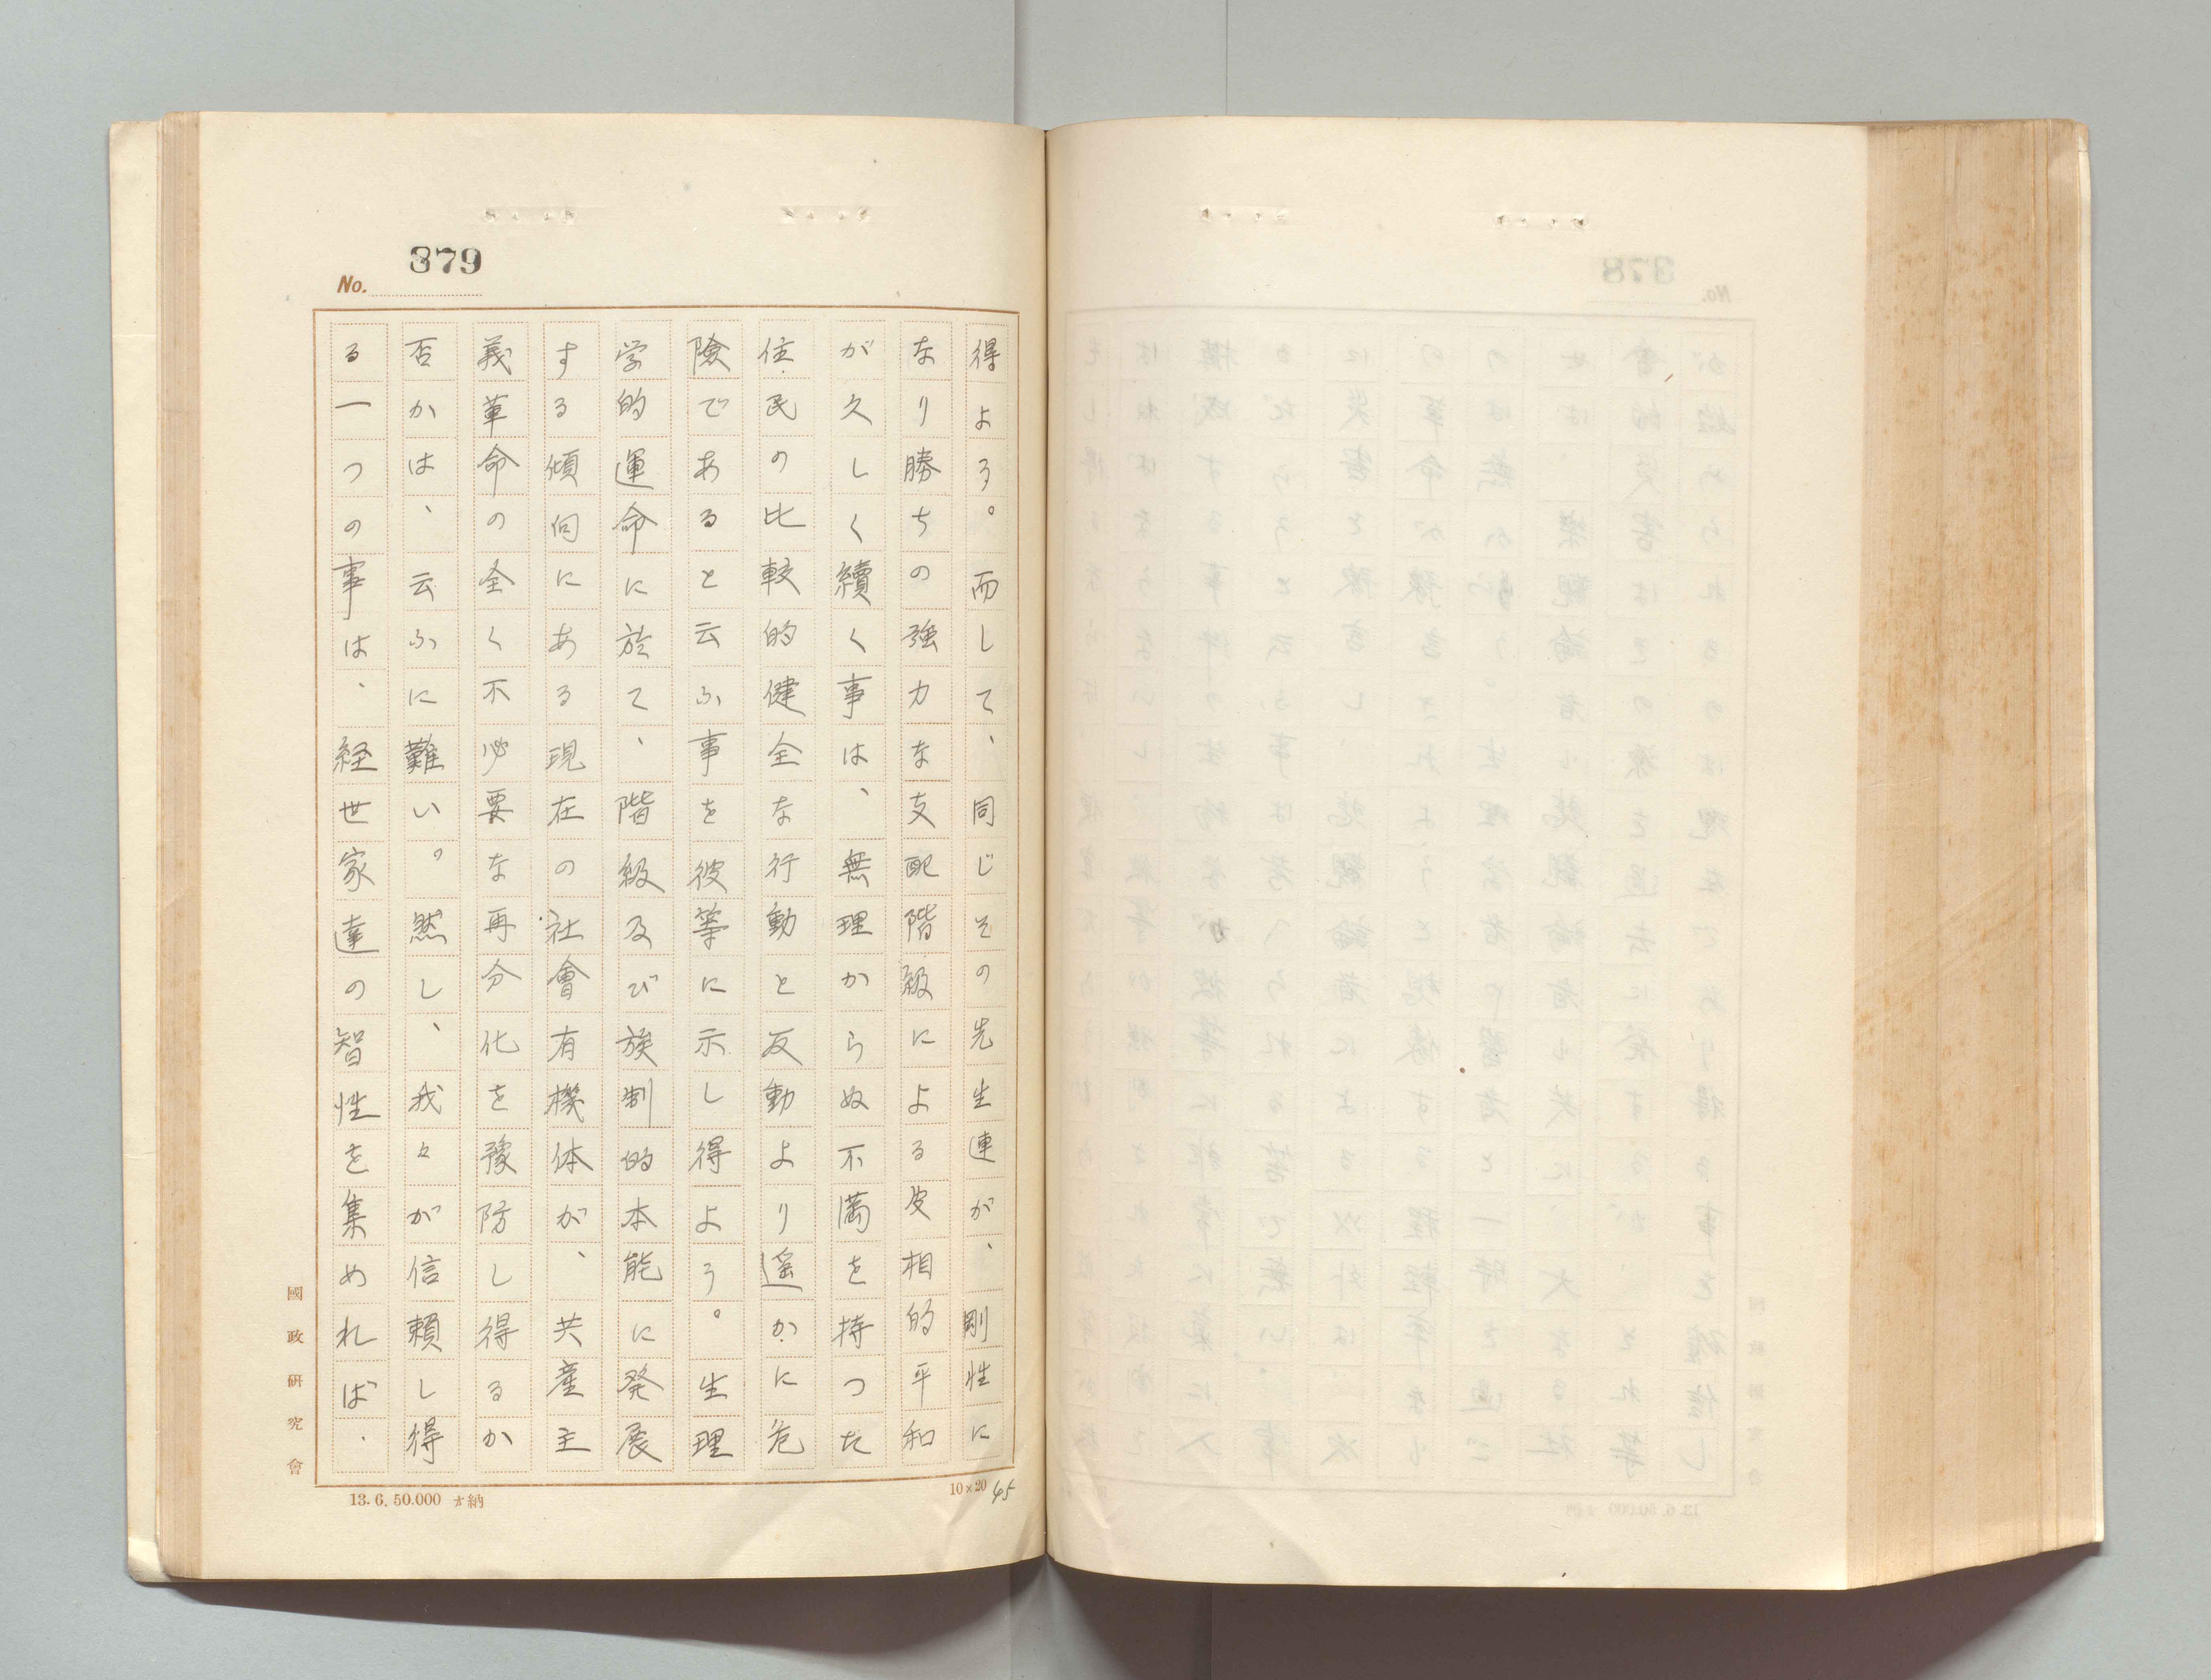 379
No.
得よる。而して、同じその先生連が、剛性に
なり勝ちの強力な支配階級による皮相的平和
が久しく續く事は、無理からぬ不満を持つた
住民の比較的健全な行動と反動より遥かに危
險であると云ふ事を彼等に示し得よう。生理
学的運命に於て、階級及び族制的本能に発展
する傾向にある現在の社會有機体が、共産主
義革命の全く不必要な再分化を豫防し得るか
否かは、云ふに難い。然し、我々が信頼し得
る一つの事は、経世家達の智性を集めれば、
國政研究會
13. 6. 50.000 納
10×20
45